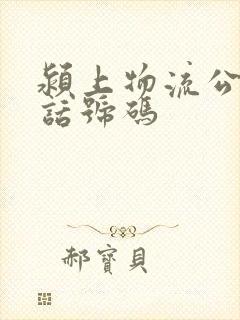 潁上物流公
話號碼
郝寶貝